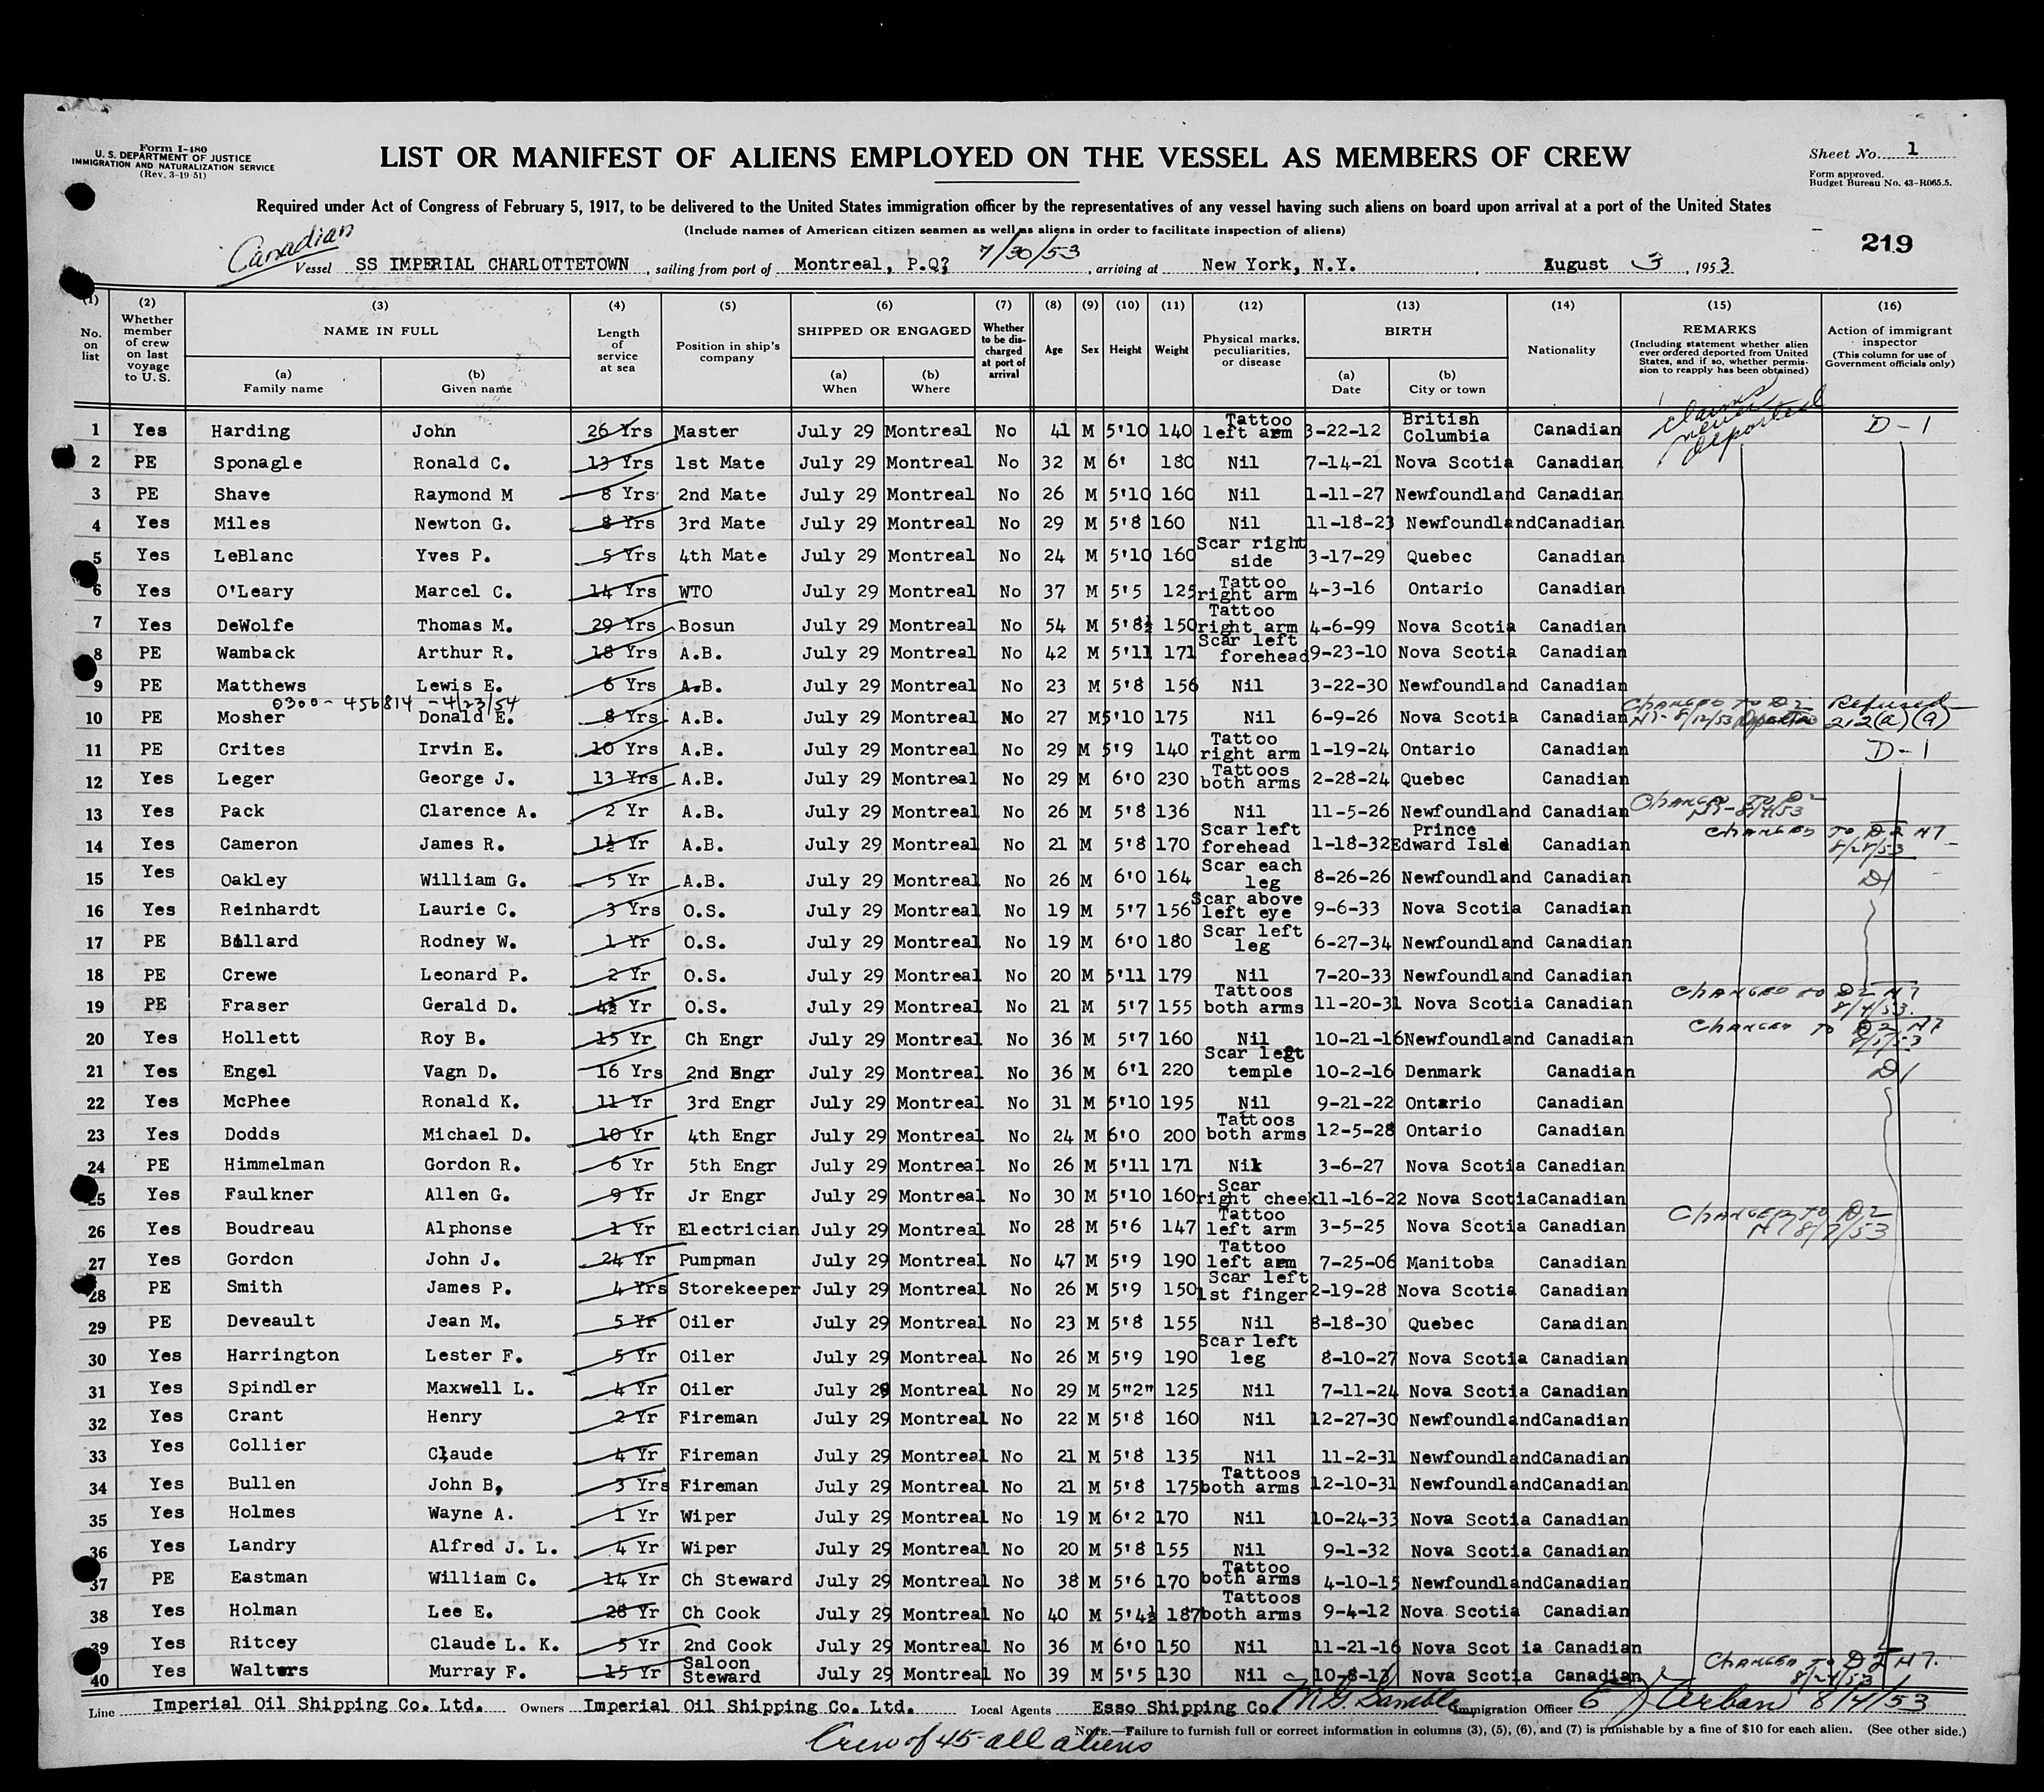 Form I-480
U. S. DEPARTMENT OF JUSTICE
IMMIGRATION AND NATURALIZATION SERVICE
(Rev. 3-19-51)
LIST OR MANIFEST OF ALIENS EMPLOYED ON THE VESSEL AS MEMBERS OF CREW
Sheet No. 1
Form approved.
Budget Bureau No. 43-R065.5.
Required under Act of Congress of February 5, 1917, to be delivered to the United States immigration officer by the representatives of any vessel having such aliens on board upon arrival at a port of the United States
(Include names of American citizen seamen as well as aliens in order to facilitate inspection of aliens)
219
Canadian
Vessel SS IMPERIAL CHARLOTTETOWN, sailing from port of Montreal, P.Q? 7/30/53, arriving at New York, N.Y., August 3, 1953
(1) No. on list (2) Whether member of crew on last voyage to U. S. (3) NAME IN FULL (a) Family name (b) Given name (4) Length of service at sea (5) Position in ship's company (6) SHIPPED OR ENGAGED (a) When (b) Where (7) Whether to be discharged at port of arrival (8) Age (9) Sex (10) Height (11) Weight (12) Physical marks, peculiarities, or disease (13) BIRTH (a) Date (b) City or town (14) Nationality (15) REMARKS (Including statement whether alien ever ordered deported from United States, and if so, whether permission to reapply has been obtained) (16) Action of immigrant inspector (This column for use of Government officials only)
1 Yes Harding John 26 Yrs Master July 29 Montreal No 41 M 5'10 140 Tattoo left arm 3-22-12 British Columbia Canadian claims never deported D-1
2 PE Sponagle Ronald C. 13 Yrs 1st Mate July 29 Montreal No 32 M 6' 180 Nil 7-14-21 Nova Scotia Canadian
3 PE Shave Raymond M 8 Yrs 2nd Mate July 29 Montreal No 26 M 5'10 160 Nil 1-11-27 Newfoundland Canadian
4 Yes Miles Newton G. 8 Yrs 3rd Mate July 29 Montreal No 29 M 5'8 160 Nil 11-18-23 Newfoundland Canadian
5 Yes LeBlanc Yves P. 5 Yrs 4th Mate July 29 Montreal No 24 M 5'10 160 Scar right side 3-17-29 Quebec Canadian
6 Yes O'Leary Marcel C. 14 Yrs WTO July 29 Montreal No 37 M 5'5 125 Tattoo right arm 4-3-16 Ontario Canadian
7 Yes DeWolfe Thomas M. 29 Yrs Bosun July 29 Montreal No 54 M 5'8½ 150 Tattoo right arm 4-6-99 Nova Scotia Canadian
8 PE Wamback Arthur R. 18 Yrs A.B. July 29 Montreal No 42 M 5'11 171 Scar left forehead 9-23-10 Nova Scotia Canadian
9 PE Matthews Lewis E. 6 Yrs A.B. July 29 Montreal No 23 M 5'8 156 Nil 3-22-30 Newfoundland Canadian
0300-456814 -4/23/54
10 PE Mosher Donald E. 8 Yrs A.B. July 29 Montreal No 27 M 5'10 175 Nil 6-9-26 Nova Scotia Canadian CHANGED TO D2 8/12/53 Refused 212(a)(9)
11 PE Crites Irvin E. 10 Yrs A.B. July 29 Montreal No 29 M 5'9 140 Tattoo right arm 1-19-24 Ontario Canadian D-1
12 Yes Leger George J. 13 Yrs A.B. July 29 Montreal No 29 M 6'0 230 Tattoos both arms 2-28-24 Quebec Canadian
13 Yes Pack Clarence A. 2 Yr A.B. July 29 Montreal No 26 M 5'8 136 Nil 11-5-26 Newfoundland Canadian CHANGED TO D2
14 Yes Cameron James R. 1½ Yr A.B. July 29 Montreal No 21 M 5'8 170 Scar left forehead 1-18-32 Prince Edward Isle Canadian CHANGED TO D2 N7
15 Yes Oakley William G. 5 Yr A.B. July 29 Montreal No 26 M 6'0 164 Scar each leg 8-26-26 Newfoundland Canadian D1
16 Yes Reinhardt Laurie C. 3 Yrs O.S. July 29 Montreal No 19 M 5'7 156 Scar above left eye 9-6-33 Nova Scotia Canadian
17 PE Billard Rodney W. 1 Yr O.S. July 29 Montreal No 19 M 6'0 180 Scar left leg 6-27-34 Newfoundland Canadian
18 PE Crewe Leonard P. 2 Yr O.S. July 29 Montreal No 20 M 5'11 179 Nil 7-20-33 Newfoundland Canadian
19 PE Fraser Gerald D. 4½ Yr O.S. July 29 Montreal No 21 M 5'7 155 Tattoos both arms 11-20-31 Nova Scotia Canadian CHANGED TO D2 N7 8/4/53.
20 Yes Hollett Roy B. 15 Yr Ch Engr July 29 Montreal No 36 M 5'7 160 Nil 10-21-16 Newfoundland Canadian CHANGED TO D2 N7
21 Yes Engel Vagn D. 16 Yrs 2nd Engr July 29 Montreal No 36 M 6'1 220 Scar left temple 10-2-16 Denmark Canadian D1
22 Yes McPhee Ronald K. 11 Yr 3rd Engr July 29 Montreal No 31 M 5'10 195 Nil 9-21-22 Ontario Canadian
23 Yes Dodds Michael D. 10 Yr 4th Engr July 29 Montreal No 24 M 6'0 200 Tattoos both arms 12-5-28 Ontario Canadian
24 PE Himmelman Gordon R. 6 Yr 5th Engr July 29 Montreal No 26 M 5'11 171 Nil 3-6-27 Nova Scotia Canadian
25 Yes Faulkner Allen G. 9 Yr Jr Engr July 29 Montreal No 30 M 5'10 160 Scar right cheek 11-16-22 Nova Scotia Canadian
26 Yes Boudreau Alphonse 1 Yr Electrician July 29 Montreal No 28 M 5'6 147 Tattoo left arm 3-5-25 Nova Scotia Canadian CHANGED TO D2 N7 8/7/53
27 Yes Gordon John J. 24 Yr Pumpman July 29 Montreal No 47 M 5'9 190 Tattoo left arm 7-25-06 Manitoba Canadian
28 PE Smith James P. 4 Yrs Storekeeper July 29 Montreal No 26 M 5'9 150 Scar left 1st finger 2-19-28 Nova Scotia Canadian
29 PE Deveault Jean M. 5 Yr Oiler July 29 Montreal No 23 M 5'8 155 Nil 8-18-30 Quebec Canadian
30 Yes Harrington Lester F. 5 Yr Oiler July 29 Montreal No 26 M 5'9 190 Scar left leg 8-10-27 Nova Scotia Canadian
31 Yes Spindler Maxwell L. 4 Yr Oiler July 29 Montreal No 29 M 5"2" 125 Nil 7-11-24 Nova Scotia Canadian
32 Yes Crant Henry 2 Yr Fireman July 29 Montreal No 22 M 5'8 160 Nil 12-27-30 Newfoundland Canadian
33 Yes Collier Claude 4 Yr Fireman July 29 Montreal No 21 M 5'8 135 Nil 11-2-31 Newfoundland Canadian
34 Yes Bullen John B, 3 Yrs Fireman July 29 Montreal No 21 M 5'8 175 Tattoos both arms 12-10-31 Newfoundland Canadian
35 Yes Holmes Wayne A. 1 Yr Wiper July 29 Montreal No 19 M 6'2 170 Nil 10-24-33 Nova Scotia Canadian
36 Yes Landry Alfred J. L. 4 Yr Wiper July 29 Montreal No 20 M 5'8 155 Nil 9-1-32 Nova Scotia Canadian
37 PE Eastman William C. 14 Yr Ch Steward July 29 Montreal No 38 M 5'6 170 Tattoo both arms 4-10-15 Newfoundland Canadian
38 Yes Holman Lee E. 28 Yr Ch Cook July 29 Montreal No 40 M 5'4½ 187 Tattoos both arms 9-4-12 Nova Scotia Canadian
39 Yes Ritcey Claude L. K. 5 Yr 2nd Cook July 29 Montreal No 36 M 6'0 150 Nil 11-21-16 Nova Scotia Canadian
40 Yes Walters Murray F. 15 Yr Saloon Steward July 29 Montreal No 39 M 5'5 130 Nil 10-8-13 Nova Scotia Canadian CHANGED TO D2 N7.
Line Imperial Oil Shipping Co. Ltd. Owners Imperial Oil Shipping Co. Ltd. Local Agents Esso Shipping Co. Immigration Officer 8/4/53
Note.—Failure to furnish full or correct information in columns (3), (5), (6), and (7) is punishable by a fine of $10 for each alien. (See other side.)
Crew of 45-all aliens